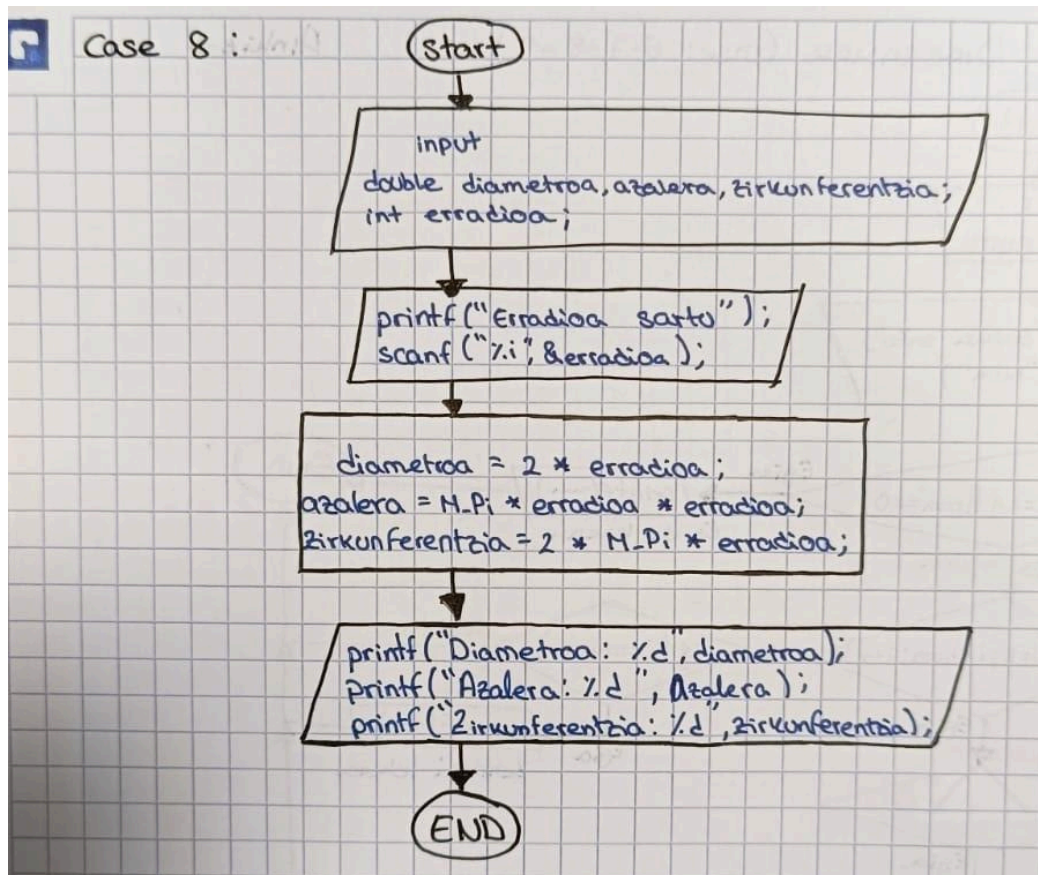 Case 8:
start
input
double diametroa, azalera, zirkunferentzia;
int erradioa;
printf("Erradioa sartu");
scanf("%i", &erradioa);
diametroa = 2 * erradioa;
azalera = M_Pi * erradioa * erradioa;
zirkunferentzia = 2 * M_Pi * erradioa;
printf("Diametroa: %d", diametroa);
printf("Azalera: %d", Azalera);
printf("Zirkunferentzia: %d", zirkunferentzia);
END